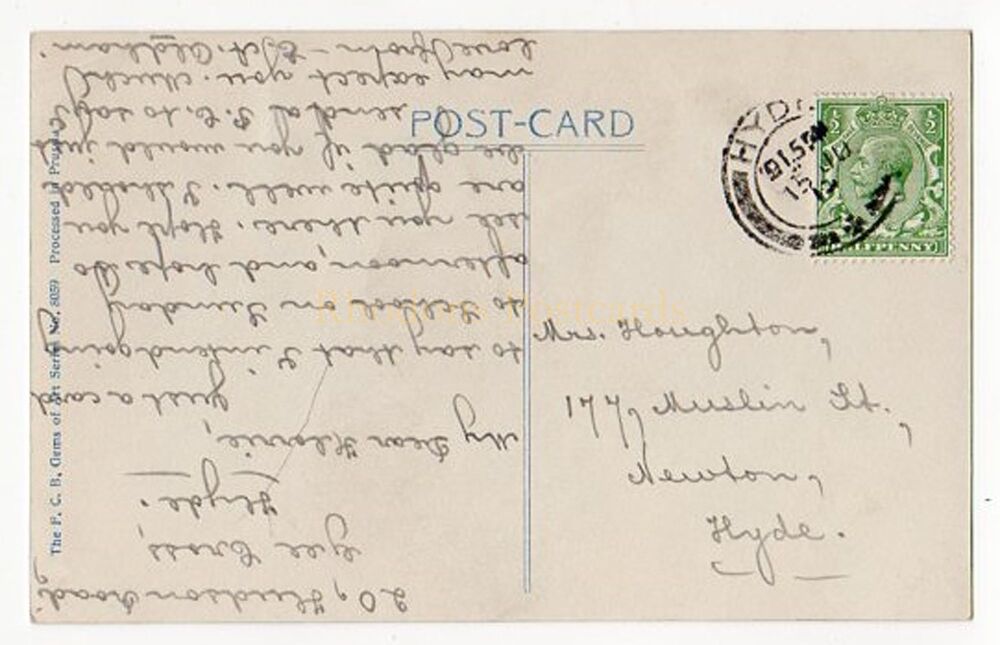 20, Hudson Road,
Gee Cross,
Hyde.
My Dear Florrie,
Just a card
to say that I intend going
to School on Sunday
afternoon, and hope to
see you there. Hope you
are quite well. I should
be glad if you would just
send a P.C. to say I
may expect you. Much
love from - E.A. Oldham.
POST-CARD
HYDE
9.15 PM
15 JU
HALFPENNY
1/2
1/2
Mrs. Houghton,
177, Muslin St.,
Newton,
Hyde.
The P. C. B. Gems of Art Series No. 8059 Processed in Prussia
Postcards